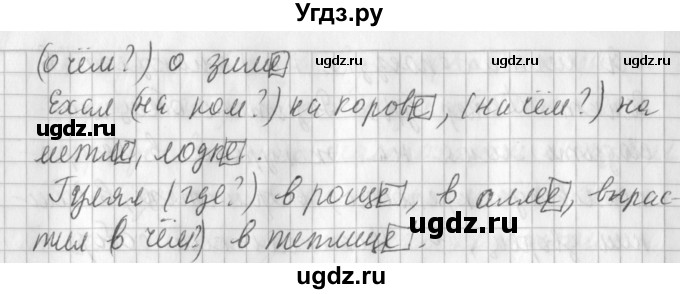 Угдз.ру
(о чём?) о зиме
ugdz.ru ugdz.ru
Ехал (на ком?) на корове, (на чём?) на
ugdz.ru ugdz.ru
метле, лодке.
ugdz.ru
Гулял (где?) в роще, в аллее, вырас-
ugdz.ru
тил в чём?) в теплице.
ugdz.ru
ugdz.ru